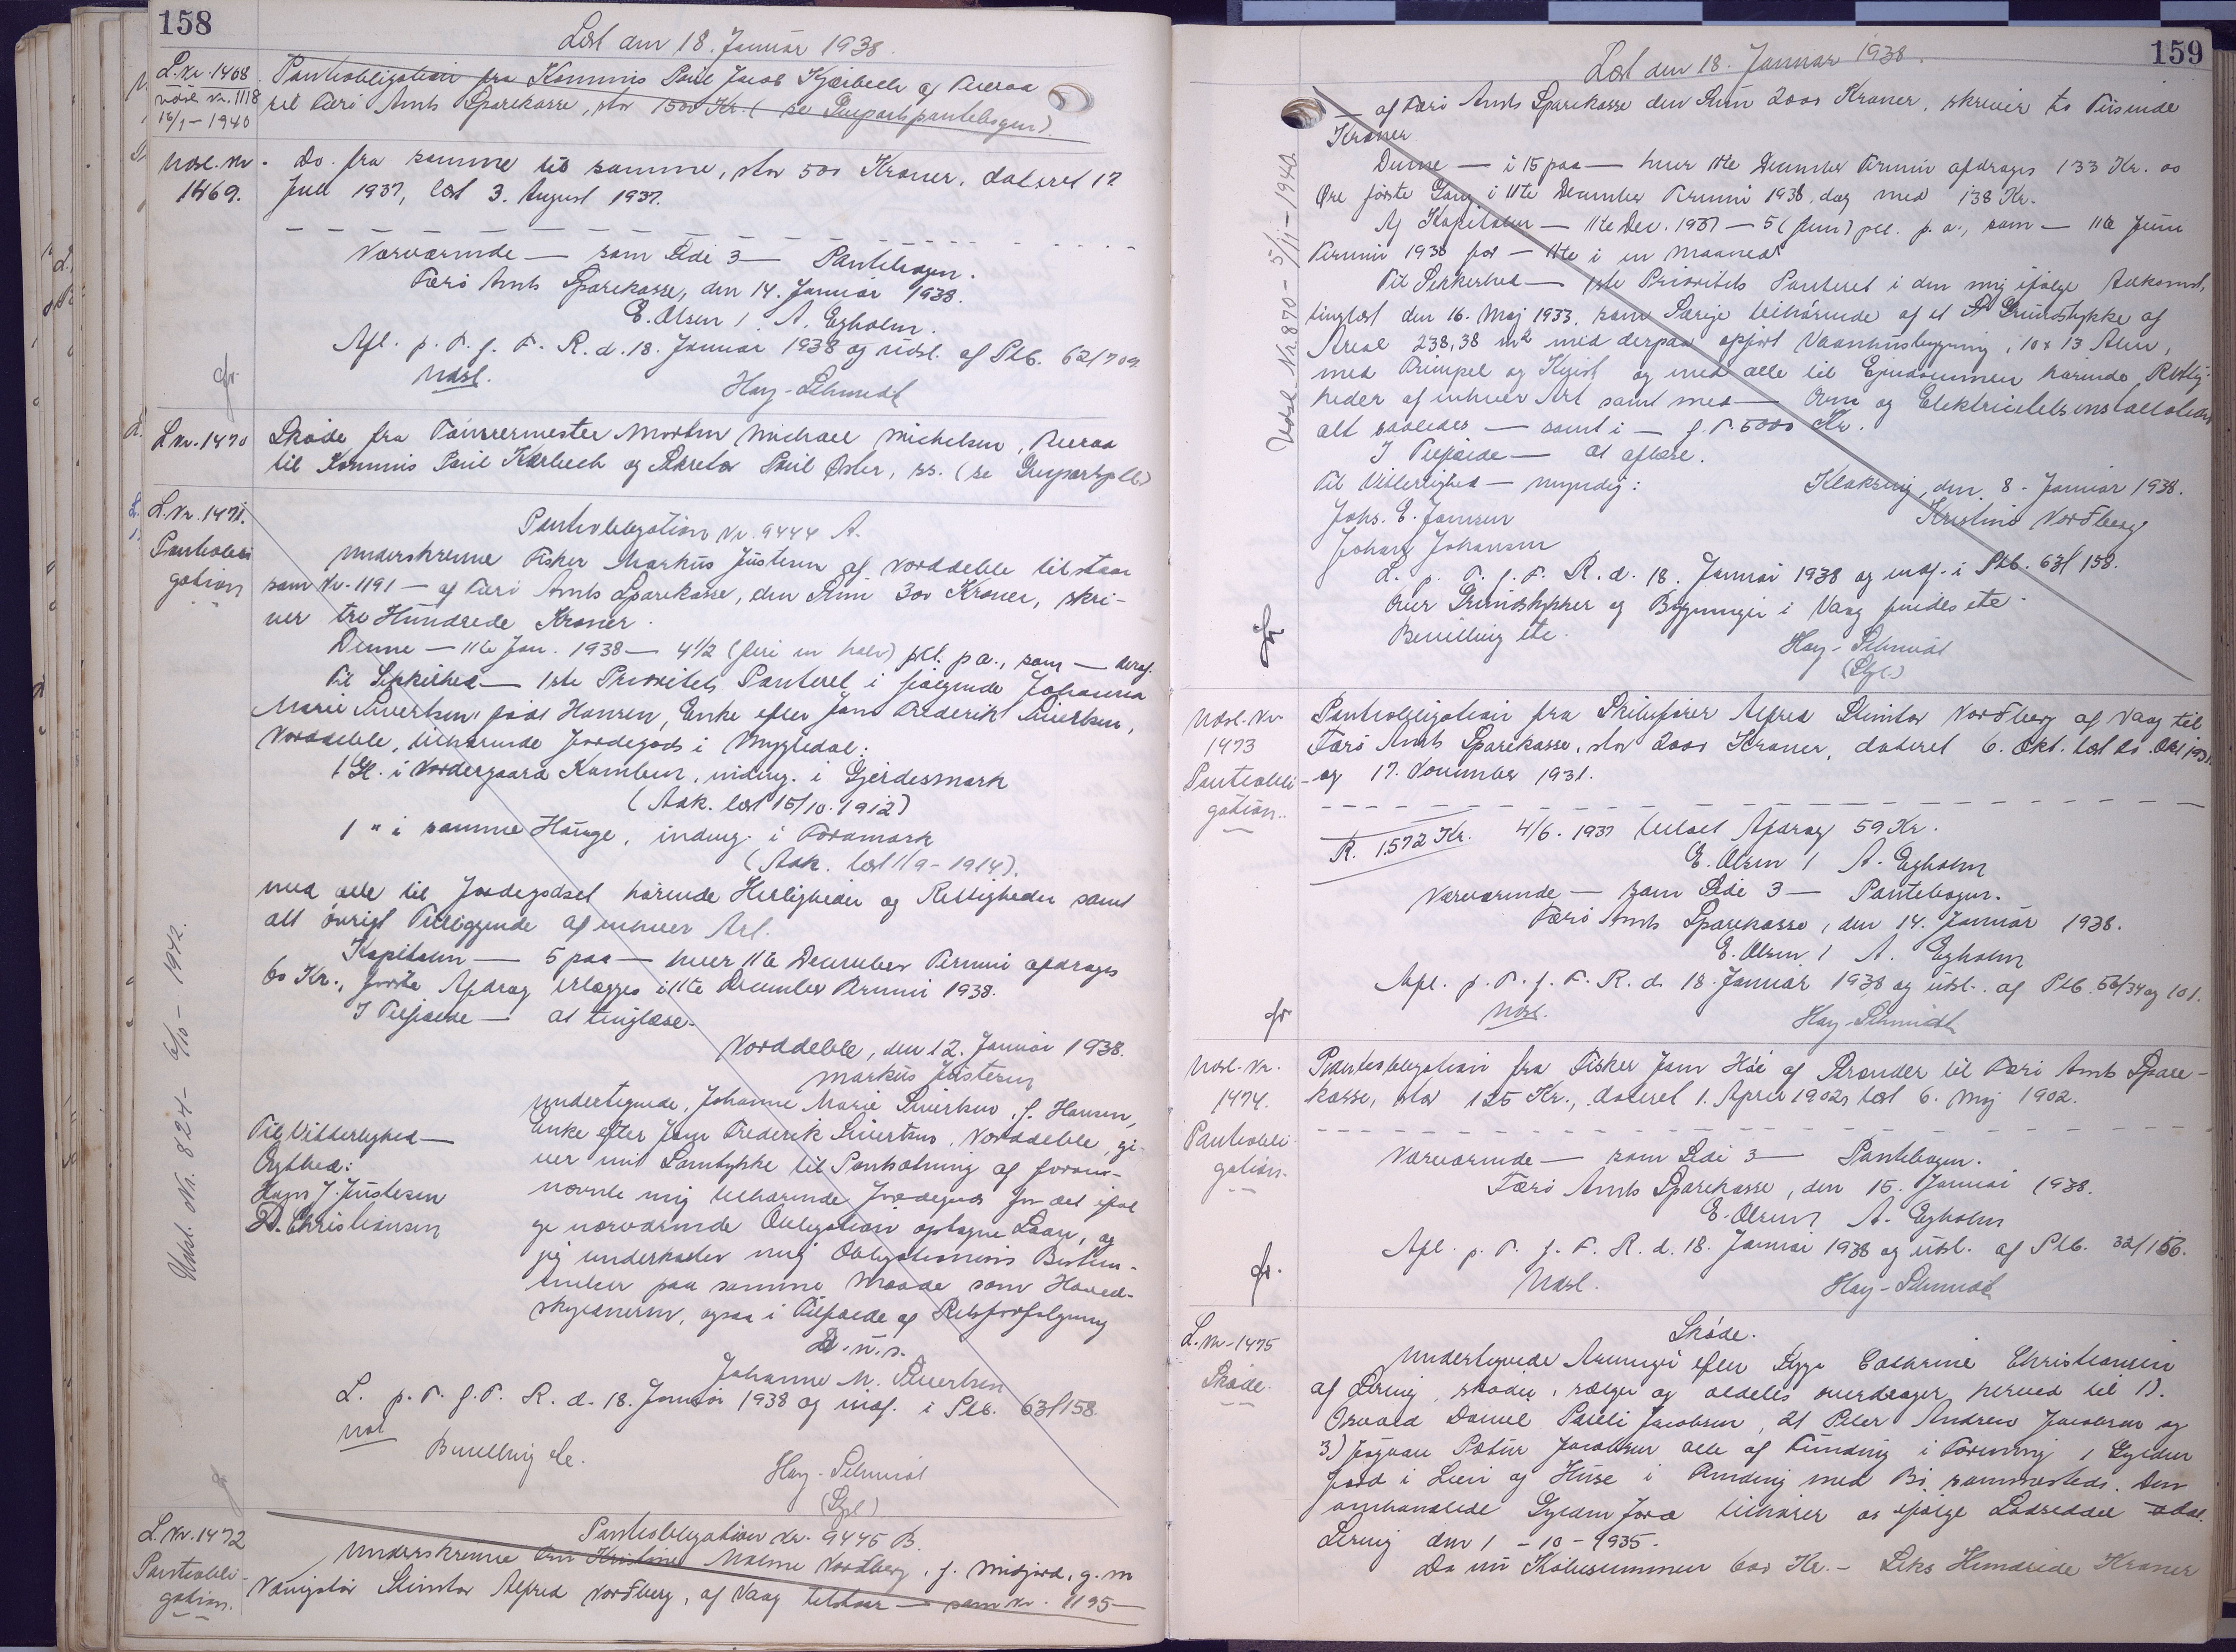 158
Læst den 18. Januar 1938.
L. Nr. 1468
Udsl. Nr. 1118
16/1 – 1940
Panteobligation fra Kommis Poul Jacob Kjærbech af Tveraa
til Færö Amts Sparekasse, stor 1500 Kr. (se Skipartspantebogen)
Udsl. Nr.
1469.
Do. fra samme til samme, stor 500 Kroner, dateret 17.
Juli 1937, læst 3. August 1937.
Nærværende — som Side 3 — Pantebogen.
Færö Amts Sparekasse, den 14. Januar 1938.
E. Olsen / A. Egholm.
Afl. p. T. f. F. R. d. 18. Januar 1938 og udsl. af Ptb. 62/709.
Udsl.
Hay-Schmidt
L. Nr. 1470
Sköde fra Tömrermester Morten Michael Michelsen, Tveraa
til Kommis Poul Kærbech og Poul Öster, ss. (se
L. Nr. 1471.
Pantobli
gation
Pantobligation Nr. 9444 A.
Underskrevne Fisker Markus Justesen af Norddeble tilstaar
som Nr. 1191 — af Færö Amts Sparekasse, den Sum 300 Kroner, skri-
ver tre Hundrede Kroner.
Denne — 11te Jan. 1938 — 4½ (fire en halv) pCt. p a., som — deraf.
Til Sikkerhed — 1ste Prioritets Panteret i fölgende Johanna
Marie Sivertsen, född Hansen, Enke efter Jens Frederik Sivertsen,
Norddeble, tilhörende Jordegods i Mygledal:
1 Gl. i Nordergaard Kamben, indmg. i Gjerdesmark
(Adk. læst 15/10. 1912)
1 " i samme Hauge, indmg. i Foramark
(Adk. læst 1/9 - 1914).
med alle til Jordegodset hörende Herligheder og Rettigheder samt
alt övrigt Tilliggende af enhver Art.
Kapitalen — 5 paa — hver 11te December Termin afdrages
60 Kr., förste Afdrag erlægges i 11te December Termin 1938.
I Tilfælde — at tinglæse.
Norddeble, den 12. Januar 1938.
Markus Justesen
Undertegnede, Johanne Marie Sivertsen, f. Hansen,
Enke efter Jens Frederik Sivertsen, Norddeble, gi-
ver mit Samtykke til Pantsætning af foran-
nævnte mig tilhörende Jordegods for det iföl
ge nærværende Obligation optagne Laan, og
jeg underkaster mig Obligationens Bestem-
melser paa samme Maade som Hoved-
skyldneren, ogsaa i Tilfælde af Retsforfölgning
D. u. s.
Johanne M. Sivertsen
Til Vitterlighed —
Ægthed:
Hans J. Justesen
D. Christiansen
L. p. T. f. F. R. d. 18. Januar 1938 og indf. i Ptb. 63/158.
Bevilling etc.
Hay-Schmidt
Udsl. Nr. 824 – 6/10 – 1942.
L. Nr. 1472
Pantobli-
gation.
Pantobligation Nr. 9445 B.
Underskrevne Fru Kristine Malene Nordberg, f. Midjord, g. m
Stentor Alfred Nordberg, af Vaag tilstaar — som Nr. 1195 —
159
Læst den 18. Januar 1938.
af Færö Amts Sparekasse den Sum 2000 Kroner, skriver to Tusinde
Kroner
Denne — i 15 paa — hver 11te December Termin afdrages 133 Kr. 00
Öre förste Gang i 11te December Termin 1938, dog med 138 Kr.
Af Kapitalen — 11te Dec. 1937 — 5 (fem) pCt. p. a., som — 11te Juni
Termin 1938 for — 11te i en Maaned
Til Sikkerhed — 1ste Prioritets Panteret i den mig ifölge Adkomst,
tinglæst den 16. Maj 1933, som Særeje tilhörende af et Grundstykke af
Areal 238,38 m² med derpaa opfört Vaaningshusbygning, 10 x 13 Alen,
med og Kvist og med alle til Ejendommen hörende Rettig-
heder af enhver Art samt med — Ovne og Elektricitetsinstallation
alt saaledes — samt i — f. T. 5000 Kr.
I Tilfælde — at aflæse.
Til Vitterlighed — myndig:
Klaksvig, den 8. Januar 1938.
Johs. E. Jensen
Kristine Nordberg
Johan Johansen
L. p. T. f. F. R. d. 18. Januar 1938 og indf. i Ptb. 63/158.
Over Grundstykker og Bygninger i Vaag findes etc.
Bevilling etc.
Hay-Schmidt
Udsl. Nr. 870 – 5/11 – 1940.
Udsl. Nr.
1473
Pantobli-
gation.
Pantobligation fra Skibsförer Alfred Stentor Nordberg af Vaag til
Færö Amts Sparekasse, stor 2000 Kroner, dateret 6. Okt. læst Okt. 1931
og 17. November 1931.
R. 1572 Kr. 4/6. 1937 betalt Afdrag 59 Kr.
E. Olsen / A. Egholm
Nærværende — som Side 3 — Pantebogen.
Færö Amts Sparekasse, den 14. Januar 1938.
E. Olsen / A. Egholm
Afl. p. T. f. F. R. d. 18. Januar 1938 og udsl. af Ptb. 56/34 og 101.
Udsl.
Hay-Schmidt
Udsl. Nr.
1474.
Pantobli-
gation.
Pantobligation fra Fisker Jens Höi af Strender til Færö Amts Spare-
kasse, stor 125 Kr., dateret 1. April 1902, læst 6. Maj 1902.
Nærværende — som Side 3 — Pantebogen.
Færö Amts Sparekasse, den 15. Januar 1938.
E. Olsen A. Egholm
Afl. p. T. f. F. R. d. 18. Januar 1938 og udsl. af Ptb. 32/156.
Udsl.
Hay-Schmidt
L. Nr. 1475
Sköde.
Sköde.
Undertegnede Arvinger efter Cathrine Christiansen
af Lervig, sköder, sælger og aldeles overdrager herved til 1).
Osvald Daniel Pauli Jacobsen, 2) Peter Andrew Jacobsen og
3) Jógvan Pætur Jacobsen alle af Funding i Forening 1 Gylden
Jord i Leir og Huse i Funding med Bi sammesteds. Den
omhandlede Gylden Jord tilhörer os ifölge
Lervig den 1 – 10 – 1935.
Da nu Köbesummen 600 Kr. – Seks Hundrede Kroner